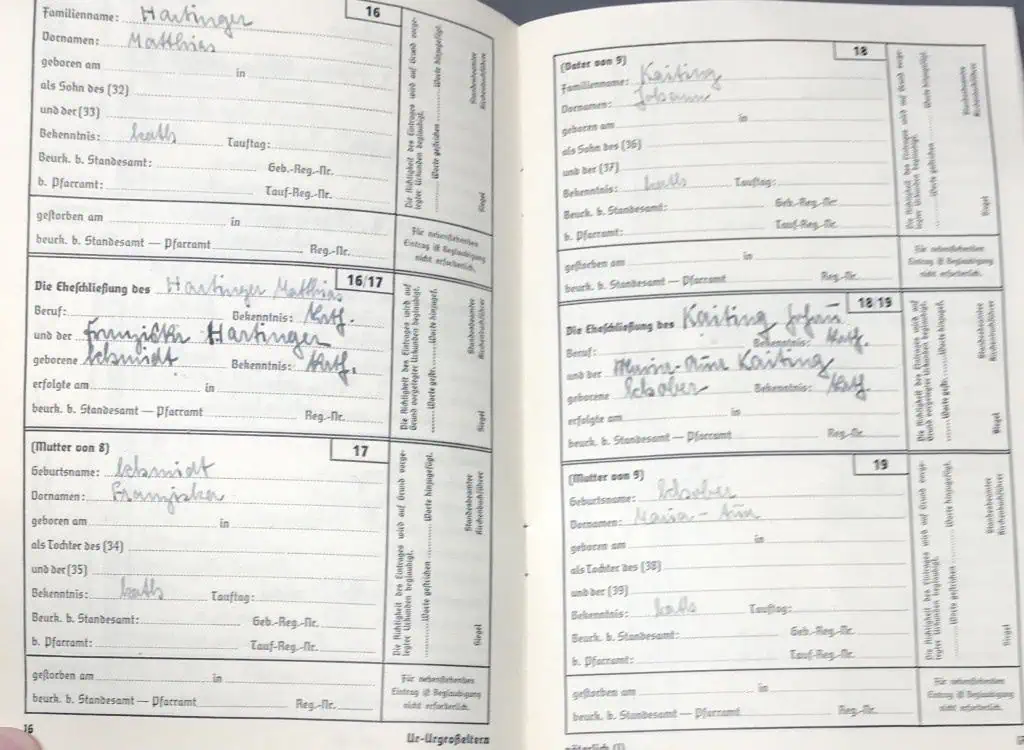 16
Familienname: Hartinger
Vornamen: Matthias
geboren am in
als Sohn des (32)
und der (33)
Bekenntnis: kath Tauftag:
Beurk. b. Standesamt: Geb.-Reg.-Nr.
b. Pfarramt: Tauf-Reg.-Nr.
Die Richtigkeit des Eintrages wird auf Grund vorge-
legter Urkunden beglaubigt.
Worte gestrichen Worte hinzugefügt.
Standesbeamter
Kirchenbuchführer
Siegel
gestorben am in
beurk. b. Standesamt — Pfarramt Reg.-Nr.
Für nebenstehenden
Eintrag ist Beglaubigung
nicht erforderlich.
16/17
Die Eheschließung des Hartinger Matthias
Beruf: Bekenntnis: Kath.
und der Franziska Hartinger
geborene Schmidt Bekenntnis: Kath.
erfolgte am in
beurk. b. Standesamt — Pfarramt Reg.-Nr.
Die Richtigkeit des Eintrages wird auf
Grund vorgelegter Urkunden beglaubigt.
Worte gestr. Worte hinzugef.
Standesbeamter
Kirchenbuchführer
Siegel
(Mutter von 8) 17
Geburtsname: Schmidt
Vornamen: Franziska
geboren am in
als Tochter des (34)
und der (35)
Bekenntnis: kath Tauftag:
Beurk. b. Standesamt: Geb.-Reg.-Nr.
b. Pfarramt: Tauf-Reg.-Nr.
Die Richtigkeit des Eintrages wird auf Grund vorge-
legter Urkunden beglaubigt.
Worte gestrichen Worte hinzugefügt.
Standesbeamter
Kirchenbuchführer
Siegel
gestorben am in
beurk. b. Standesamt — Pfarramt Reg.-Nr.
Für nebenstehenden
Eintrag ist Beglaubigung
nicht erforderlich.
16
Ur-Urgroßeltern
18
(Vater von 9)
Familienname: Kaiting
Vornamen: Johann
geboren am in
als Sohn des (36)
und der (37)
Bekenntnis: kath Tauftag:
Beurk. b. Standesamt: Geb.-Reg.-Nr.
b. Pfarramt: Tauf-Reg.-Nr.
Die Richtigkeit des Eintrages wird auf Grund vorge-
legter Urkunden beglaubigt.
Worte gestrichen Worte hinzugefügt.
Standesbeamter
Kirchenbuchführer
Siegel
gestorben am in
beurk. b. Standesamt — Pfarramt Reg.-Nr.
Für nebenstehenden
Eintrag ist Beglaubigung
nicht erforderlich.
18/19
Die Eheschließung des Kaiting Johann
Beruf: Bekenntnis: Kath.
und der Maria-Anna Kaiting
geborene Schober Bekenntnis: Kath.
erfolgte am in
beurk. b. Standesamt — Pfarramt Reg.-Nr.
Die Richtigkeit des Eintrages wird auf
Grund vorgelegter Urkunden beglaubigt.
Worte gestr. Worte hinzugef.
Standesbeamter
Kirchenbuchführer
Siegel
(Mutter von 9) 19
Geburtsname: Schober
Vornamen: Maria-Anna
geboren am in
als Tochter des (38)
und der (39)
Bekenntnis: kath Tauftag:
Beurk. b. Standesamt: Geb.-Reg.-Nr.
b. Pfarramt: Tauf-Reg.-Nr.
Die Richtigkeit des Eintrages wird auf Grund vorge-
legter Urkunden beglaubigt.
Worte gestrichen Worte hinzugefügt.
Standesbeamter
Kirchenbuchführer
Siegel
gestorben am in
beurk. b. Standesamt — Pfarramt Reg.-Nr.
Für nebenstehenden
Eintrag ist Beglaubigung
nicht erforderlich.